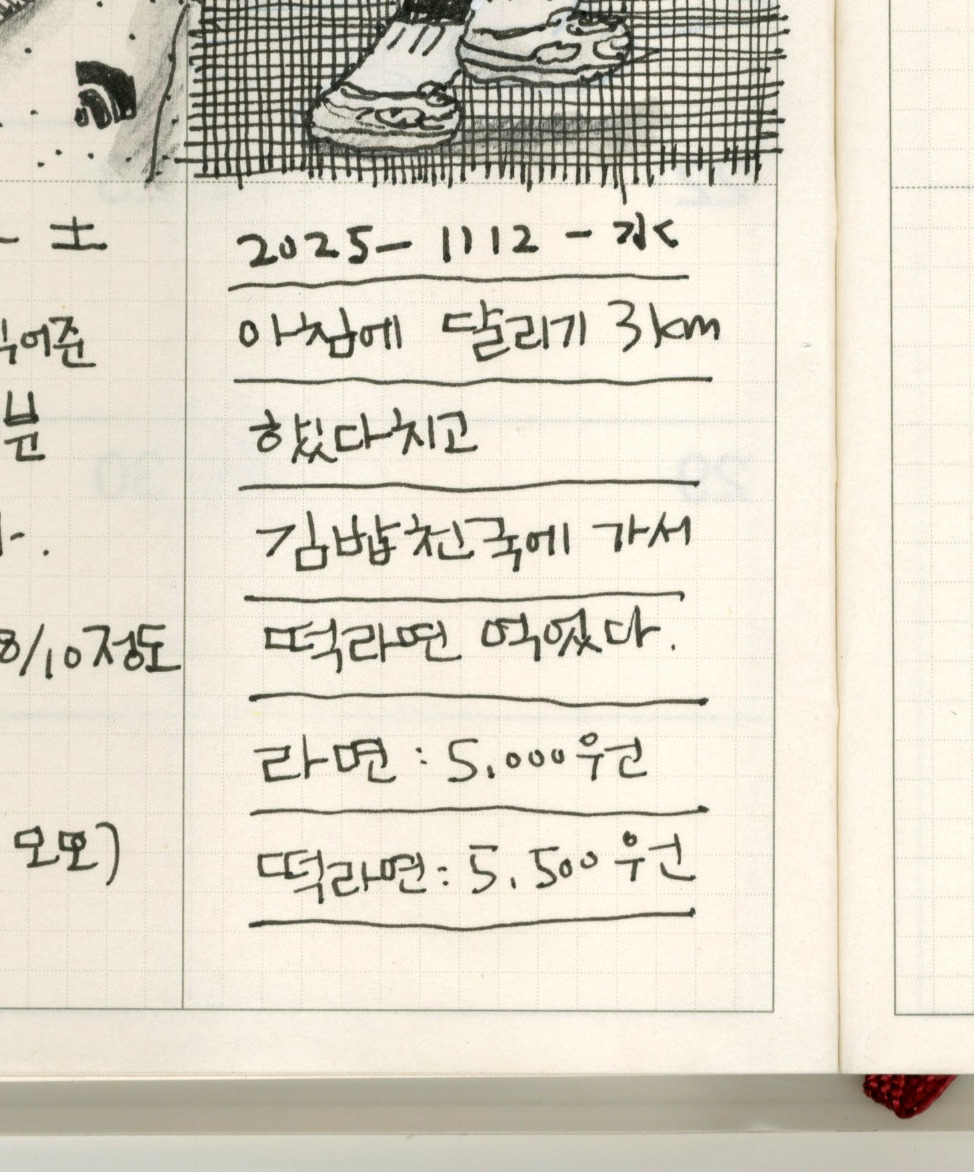 土
어준
분
8/10정도
모모)
2025- 1112 - 水
아침에 달리기 3km
했다치고
김밥천국에 가서
떡라면 먹었다.
라면 : 5,000원
떡라면: 5,500원